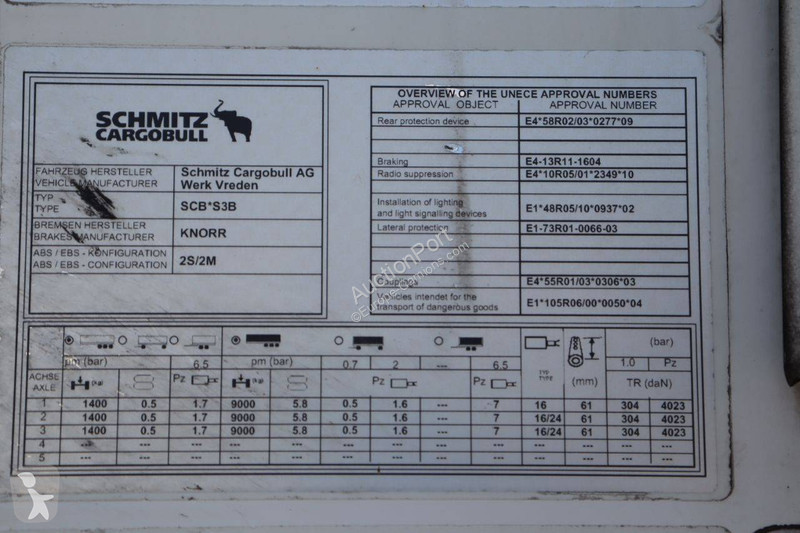 SCHMITZ
CARGOBULL
FAHRZEUG HERSTELLER
VEHICLE MANUFACTURER
Schmitz Cargobull AG
Werk Vreden
TYP
TYPE
SCB*S3B
BREMSEN HERSTELLER
BRAKES MANUFACTURER
KNORR
ABS / EBS - KONFIGURATION
ABS / EBS - CONFIGURATION
2S/2M
OVERVIEW OF THE UNECE APPROVAL NUMBERS
APPROVAL OBJECT APPROVAL NUMBER
Rear protection device E4*58R02/03*0277*09
Braking E4-13R11-1604
Radio suppression E4*10R05/01*2349*10
Installation of lighting
and light signalling devices E1*48R05/10*0937*02
Lateral protection E1-73R01-0066-03
Couplings E4*55R01/03*0306*03
Vehicles intendet for the
transport of dangerous goods E1*105R06/00*0050*04
pm (bar) 6.5 pm (bar) 0.7 2 --- 6.5 (bar)
1.0 Pz
ACHSE
AXLE
Pz Pz Pz TYPE (mm) TR (daN)
1 1400 0.5 1.7 9000 5.8 0.5 1.6 --- 7 16 61 304 4023
2 1400 0.5 1.7 9000 5.8 0.5 1.6 --- 7 16/24 61 304 4023
3 1400 0.5 1.7 9000 5.8 0.5 1.6 --- 7 16/24 61 304 4023
4 --- --- --- --- --- --- --- --- --- --- --- --- ---
5 --- --- --- --- --- --- --- --- --- --- --- --- ---
AuctionPort